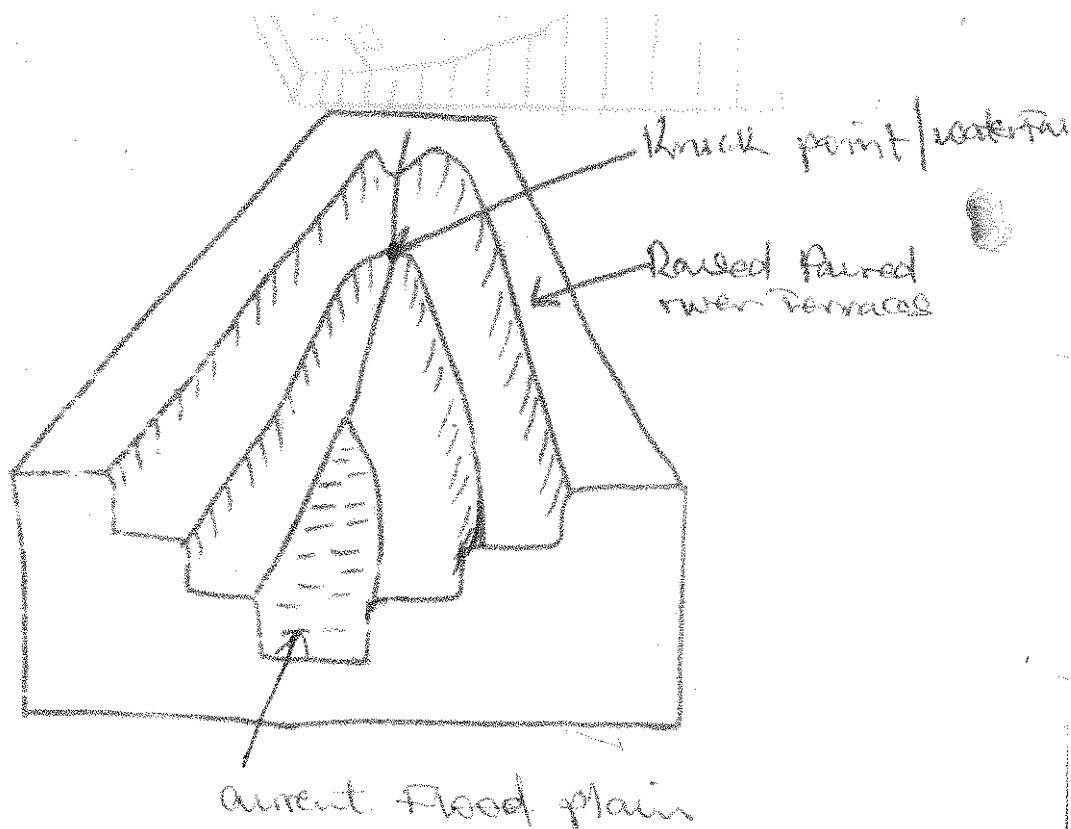 Knuck point/waterfal
Raised Paired
river Terraces
current Flood plain